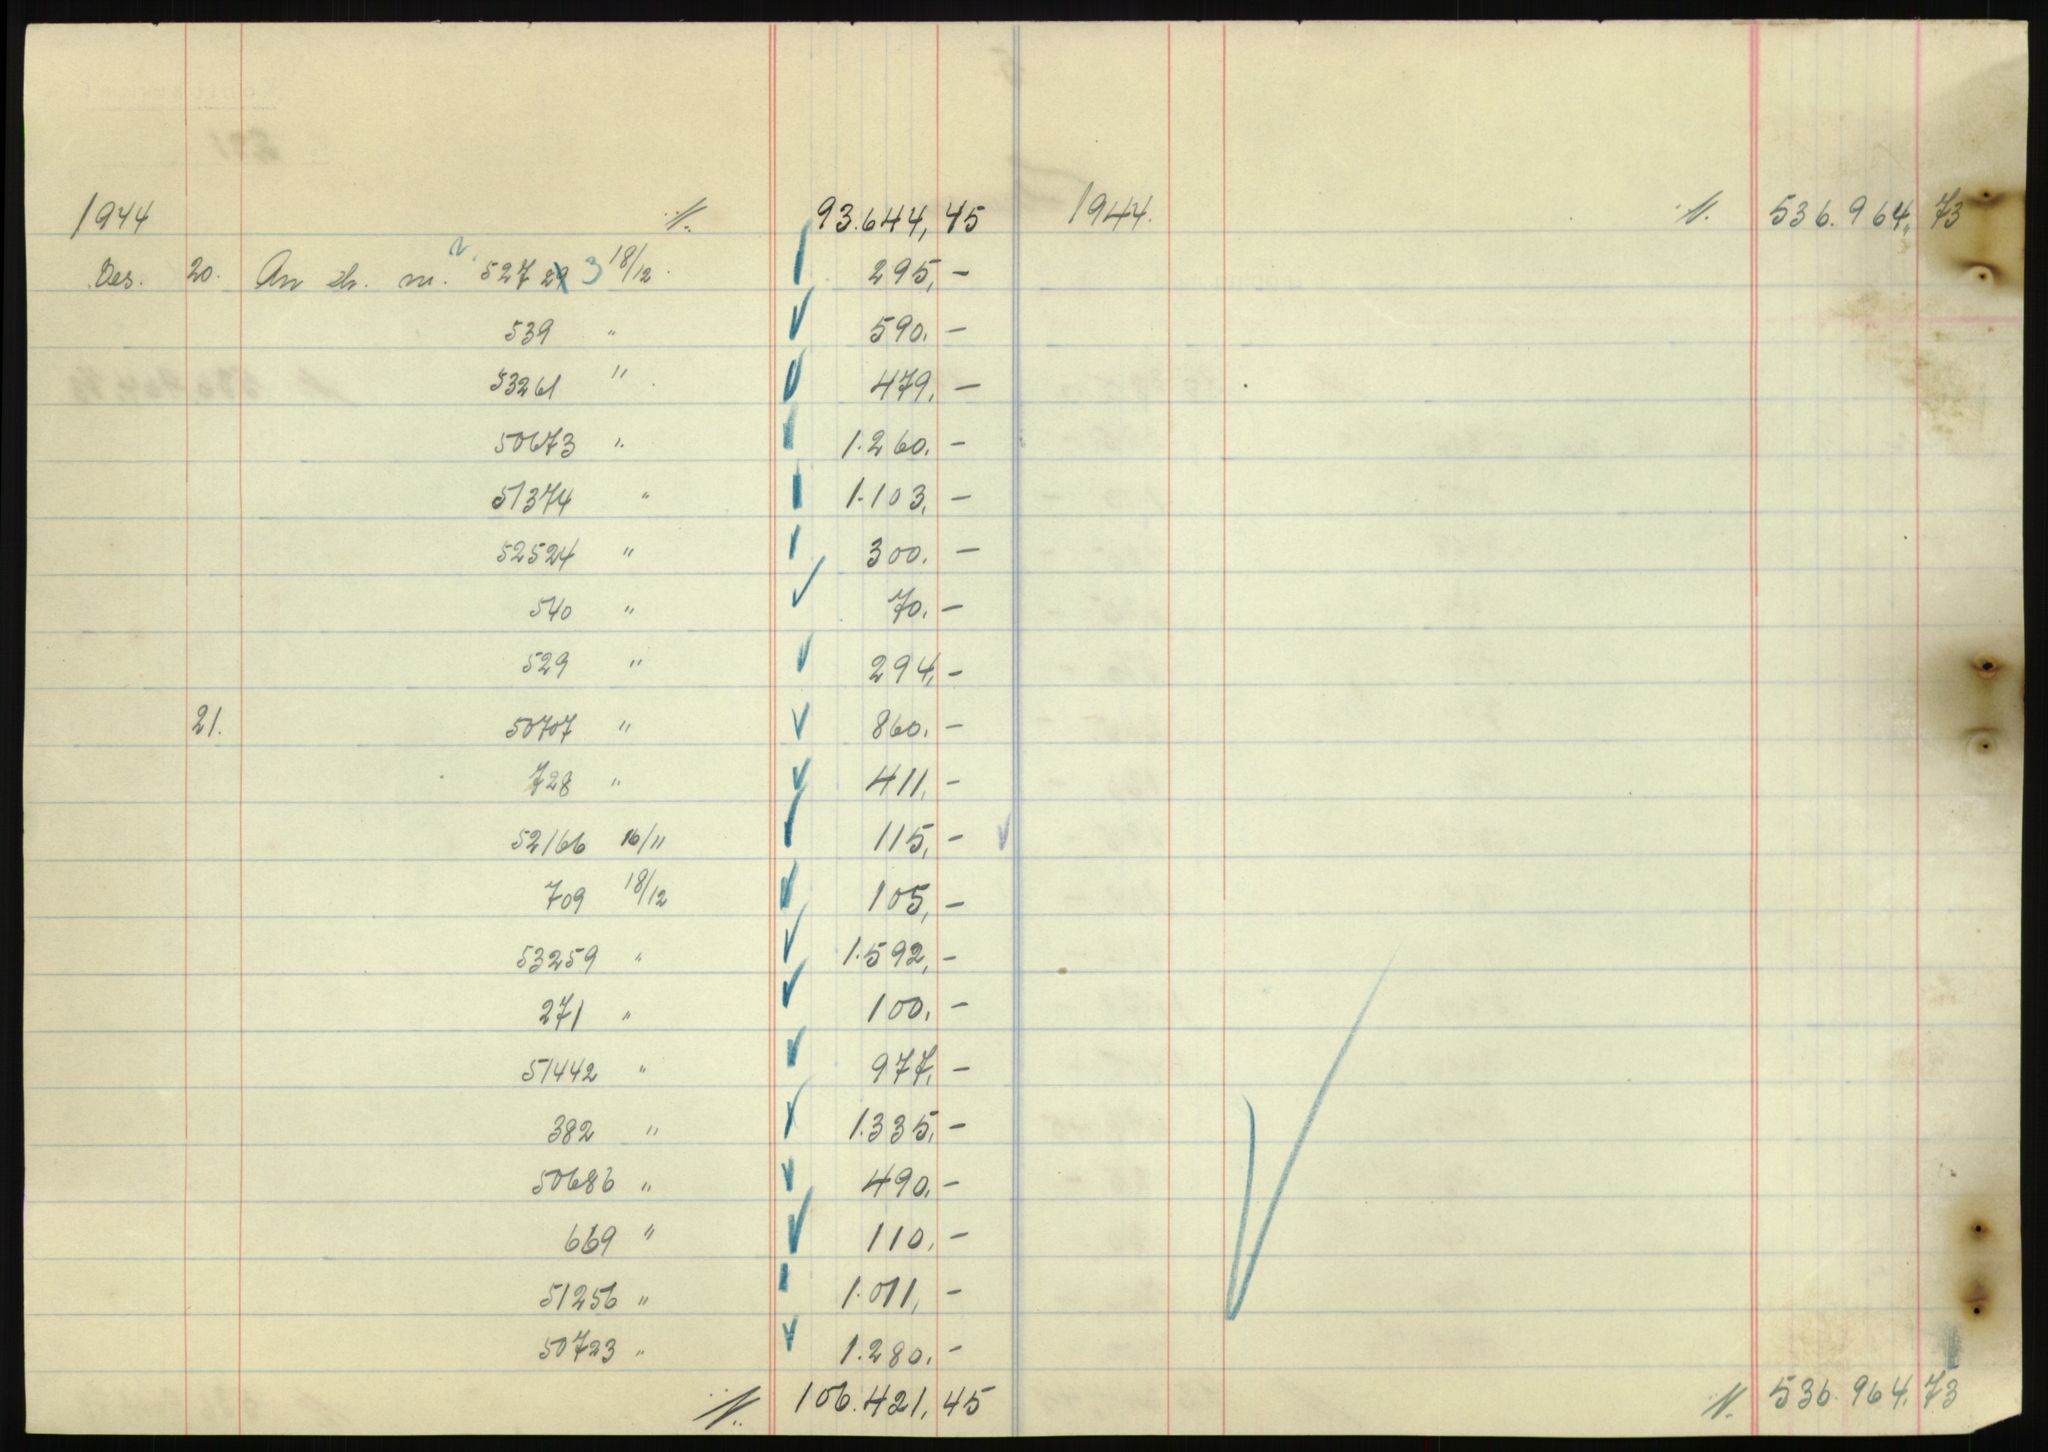 1944 ./. 93.644,45 1944. ./. 536.964,73
Des. 20. An ch. nr. 52729 3 18/12 295,-
539 " 590,-
53261 " 479,-
50673 " 1.260,-
51374 " 1.103,-
52524 " 300,-
540 " 70,-
529 " 294,-
21. 50707 " 860,-
728 " 411,-
52166 16/11 115,-
709 18/12 105,-
53259 " 1.592,-
271 " 100,-
51442 " 977,-
382 " 1.335,-
50686 " 490,-
669 " 110,-
51256 " 1.011,-
50723 " 1.280,-
./. 106.421,45 ./. 536.964,73